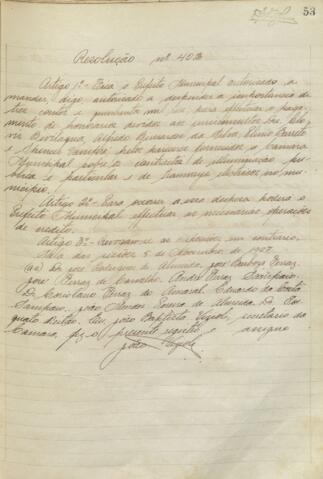 53
Resolução nº 403
Artigo 1º - Fica o Prefeito Municipal autorizado, a
mandar, digo, autorizado a despender a importancia de
tres contos e quinhentos mil réis, para effectuar o paga-
mento de honorarios devidos aos
Bevilaqua, Alfredo Bernardes da Silva, Plinio Barreto
e Spencer Vampré, pelos pareceres fornecidos a Camara
Municipal sobre os contractos de illuminação pu-
blica e particular e de tramways electricos no mu-
nicipio.
Artigo 2º - Para occorrer a essa despeza poderá o
Prefeito Municipal effectuar as necessarias operações
de credito.
Artigo 3º - Revogam-se as disposições em contrario.
Sala das sessões, 5 de de 1927
(aa) Dr. José Rodrigues de Almeida, José Barbosa Ferraz,
José Ferraz de Carvalho, André Ferraz Sampaio,
Dr. Coriolano Ferraz do Amaral, Eduardo da Costa
Sampaio, João Alves de Almeida, Dr. Pas-
quale. Eu, João Baptista, secretario da
Camara, fiz o presente registro e assigno
João